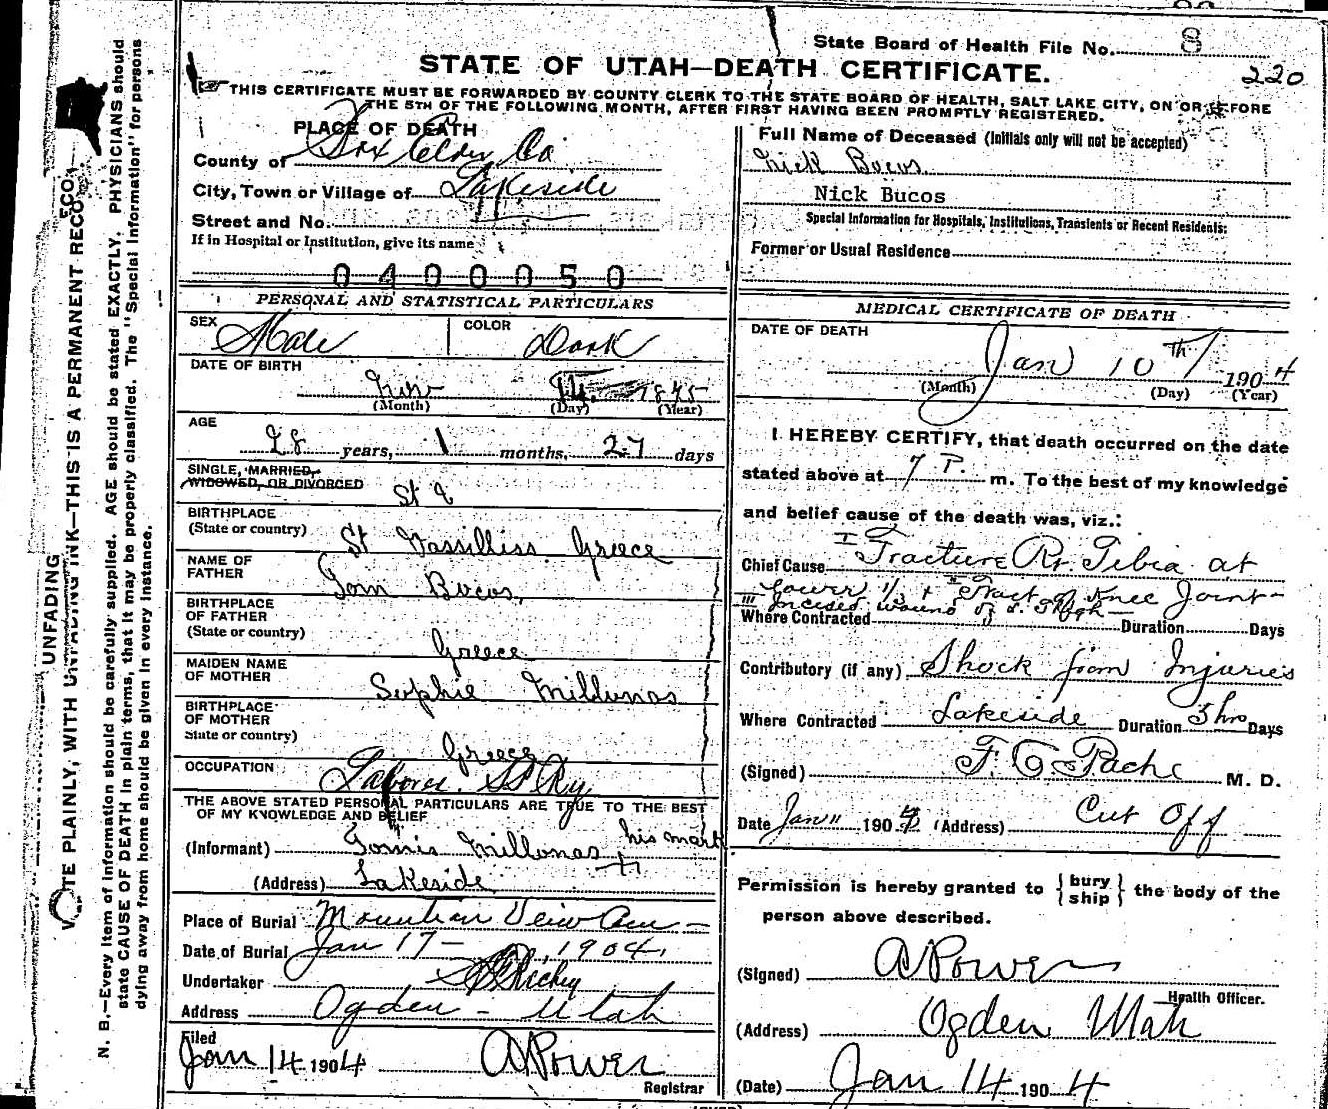 State Board of Health File No. 8
220
STATE OF UTAH—DEATH CERTIFICATE.
THIS CERTIFICATE MUST BE FORWARDED BY COUNTY CLERK TO THE STATE BOARD OF HEALTH, SALT LAKE CITY, ON OR BEFORE
THE 5TH OF THE FOLLOWING MONTH, AFTER FIRST HAVING BEEN PROMPTLY REGISTERED.
PLACE OF DEATH
County of Box Elder Co
City, Town or Village of Lakeside
Street and No.
If in Hospital or Institution, give its name
0400050
PERSONAL AND STATISTICAL PARTICULARS
SEX Male COLOR Dark
DATE OF BIRTH
1875
(Month) (Day) (Year)
AGE
28 years, 1 months, 27 days
SINGLE, MARRIED,
WIDOWED, OR DIVORCED
BIRTHPLACE
(State or country) St Vassilliss Greece
NAME OF
FATHER Tom Bucos
BIRTHPLACE
OF FATHER
(State or country) Greece
MAIDEN NAME
OF MOTHER Sophie Millonas
BIRTHPLACE
OF MOTHER
State or country) Greece
OCCUPATION Laborer. S P Ry
THE ABOVE STATED PERSONAL PARTICULARS ARE TRUE TO THE BEST
OF MY KNOWLEDGE AND BELIEF
(Informant) Tomis Millonas his mark
+
(Address) Lakeside
Place of Burial Mountian Veiw Cem -
Date of Burial Jan 17 - 1904.
Undertaker Richey
Address Ogden - Utah
Filed
Jan 14 1904 A Power
Registrar
Full Name of Deceased (Initials only will not be accepted)
Nick Bucos
Nick Bucos
Special Information for Hospitals, Institutions, Transients or Recent Residents:
Former or Usual Residence
MEDICAL CERTIFICATE OF DEATH
DATE OF DEATH
Jan 10 Th 1904
(Month) (Day) (Year)
I HEREBY CERTIFY, that death occurred on the date
stated above at 7 P. m. To the best of my knowledge
and belief cause of the death was, viz.:
Chief Cause I Fracture Rt. Tibia at
Lower 1/3 + II Fract of Knee Joint -
III Incised wound of L. Thigh —
Where Contracted Duration Days
Contributory (if any) Shock from Injuries
Where Contracted Lakeside Duration 5 hrs Days
(Signed) M. D.
Date Jan 11 1904 (Address) Cut Off
Permission is hereby granted to { bury ship } the body of the
person above described.
(Signed) A Power
Health Officer.
(Address) Ogden Utah
(Date) Jan 14 1904
UNFADING
WRITE PLAINLY, WITH UNFADING INK—THIS IS A PERMANENT RECORD.
N. B.—Every item of information should be carefully supplied. AGE should be stated EXACTLY. PHYSICIANS should
state CAUSE OF DEATH in plain terms, that it may be properly classified. The "Special Information" for persons
dying away from home should be given in every instance.